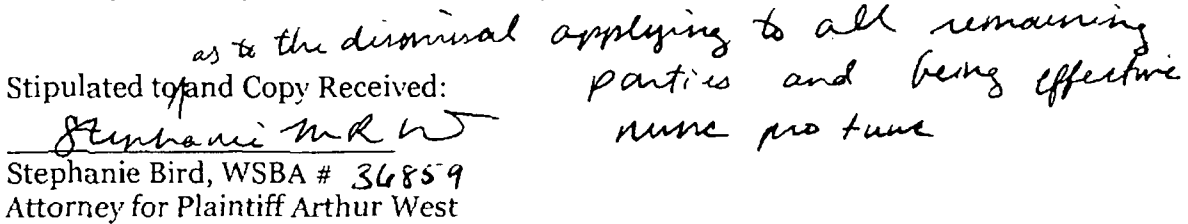 as to the dismissal applying to all remaining
parties and being effective
nunc pro tunc
Stipulated to and Copy Received:
Stephanie M R
Stephanie Bird, WSBA # 36859
Attorney for Plaintiff Arthur West